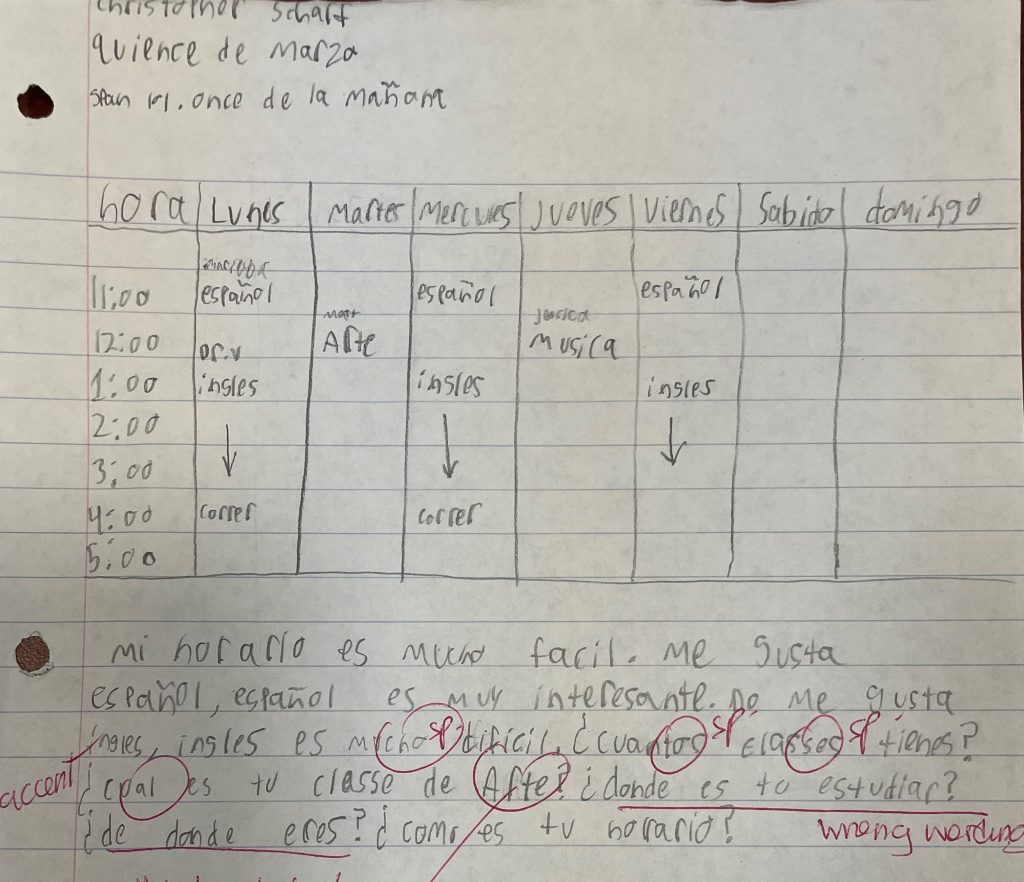 Christopher Scharf
quience de Marza
span 101. once de la mañana
hora Lunes Martes Mercules Jueves Viernes Sabido domingo
11:00 español español español
Matt Jessica
12:00 Dr.v Arte Musica
1:00 ingles ingles ingles
2:00
3:00
4:00 correr correr
5:00
Mi horario es mucho facil. Me gusta
español, español es muy interesante. no me gusta
ingles, ingles es mucho dificil. ¿cuantos classes tienes?
sp sp sp
accent
¿cual es tu classe de Arte? ¿donde es tu estudiar?
¿de donde eres? ¿como es tu horario?
wrong wording